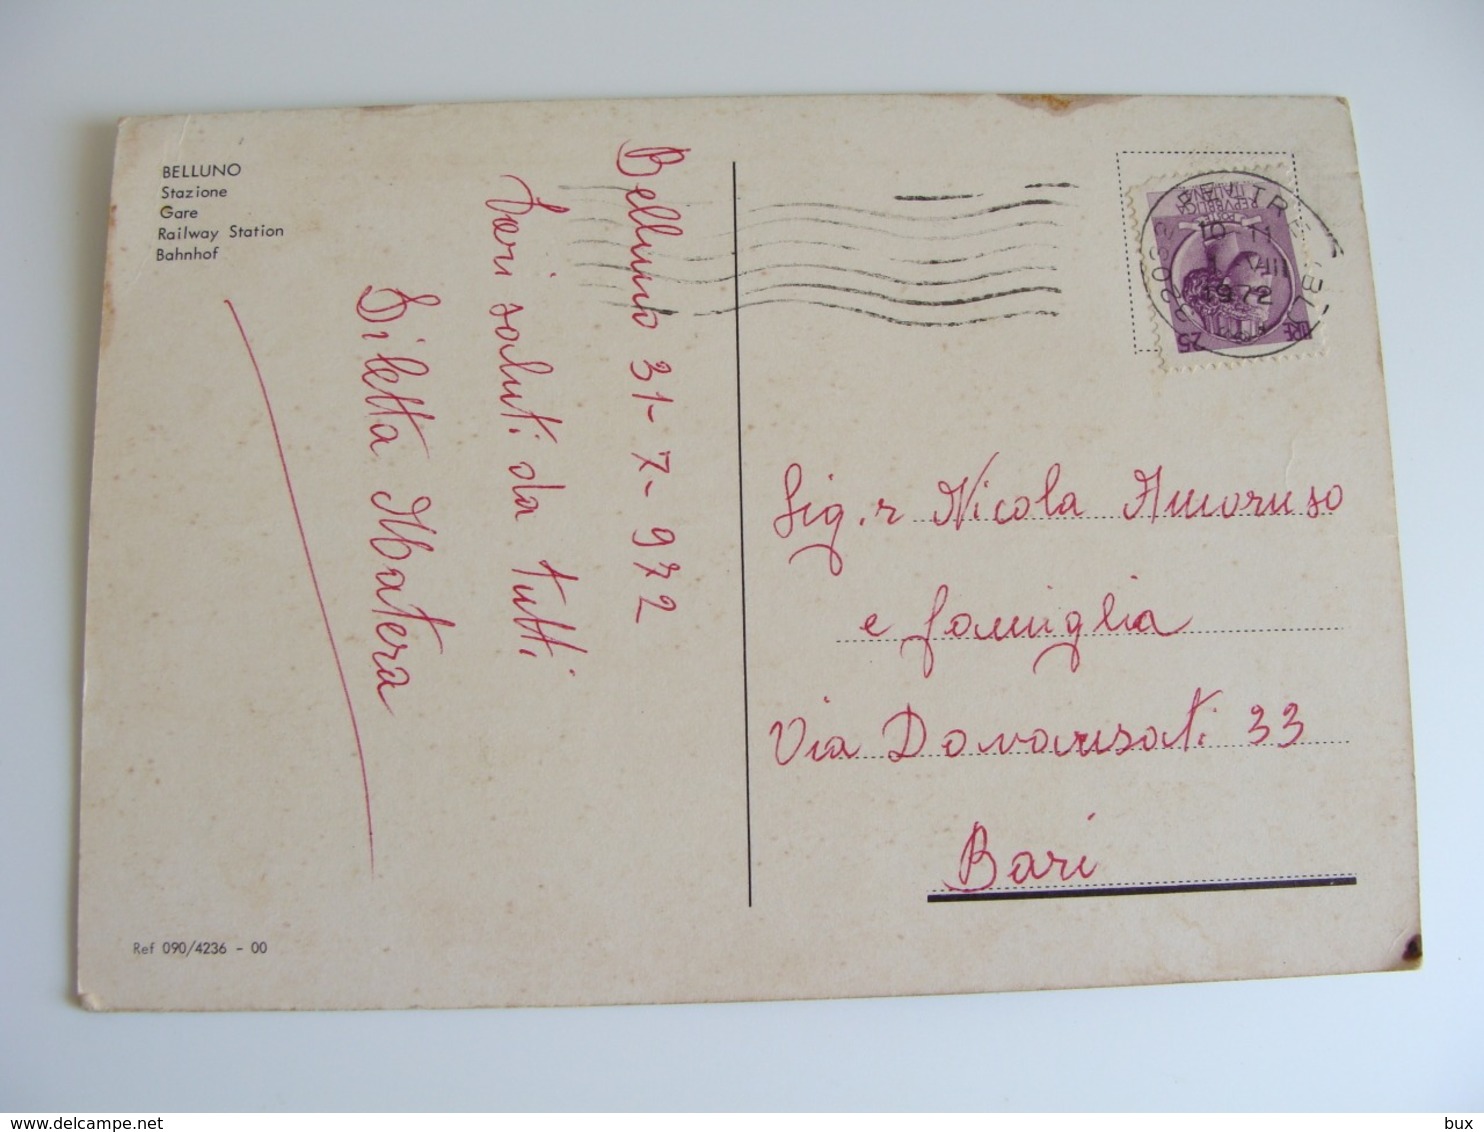 BELLUNO
Stazione
Gare
Railway Station
Bahnhof
Belluno 31-7-972
Cari saluti da tutti
Diletta Matera
Ref 090/4236 - 00
REPVBBLICA
ITALIANA
POSTE
LIRE 25
32032 FELTRE (BL)
10-11
VIII
1972
Sig.r Nicola Amoruso
e famiglia
Via Davanzati 33
Bari
www.delcampe.net
bux